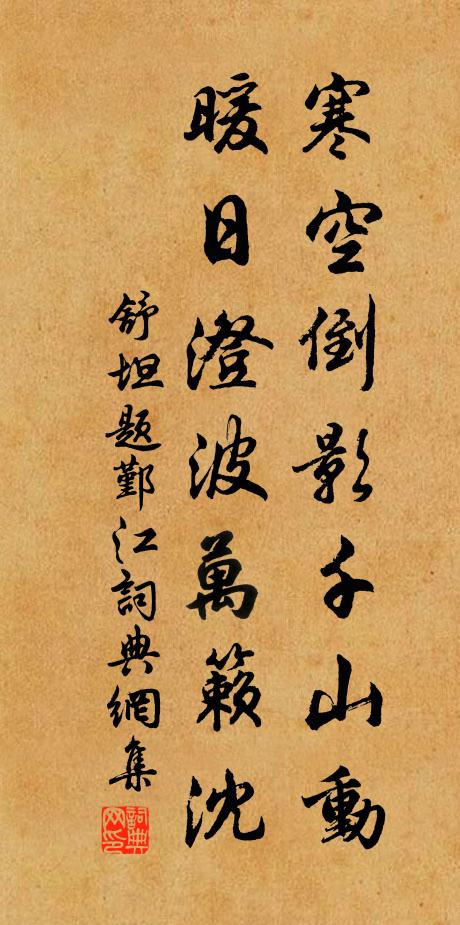 寒空倒影千山動
暖日澄波萬籟沈
舒坦題鄞江詞典網集
詞典网印